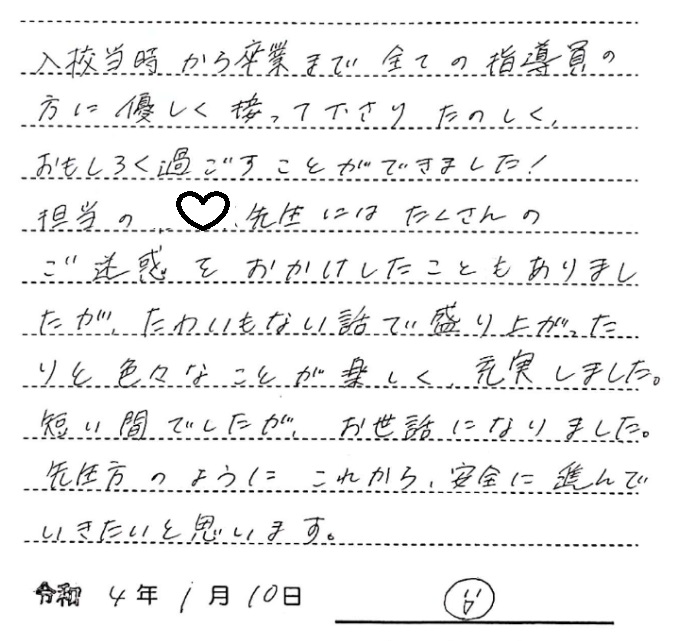 入校当時から卒業まで全ての指導員の
方に優しく接って下さりたのしく、
おもしろく過ごすことができました！
担当の 先生にはたくさんの
ご迷惑をおかけしたこともありまし
たが、たわいもない話で盛り上がった
りと色々なことが楽しく、充実しました。
短い間でしたが、お世話になりました。
先生方のようにこれから、安全に進んで
いきたいと思います。
令和 4年 1月 10日